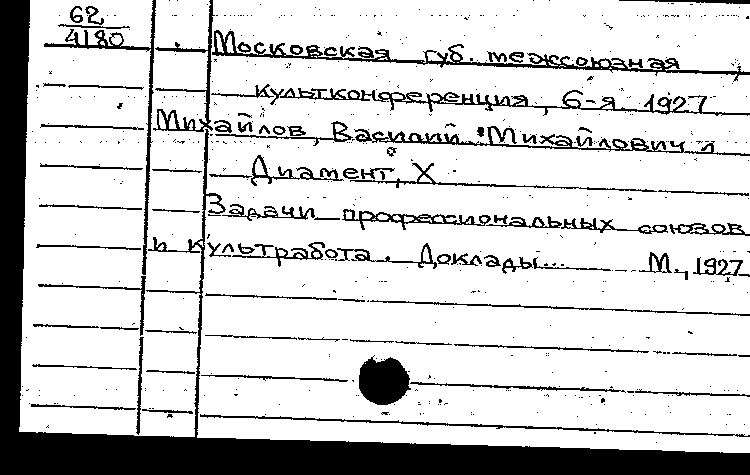 62
4180
Московская губ. межсоюзная
культконференция, 6-я 1927
Михайлов, Василий Михайлович и
Диамент, Х
Задачи профессиональных союзов
и культработа. Доклады... М., 1927